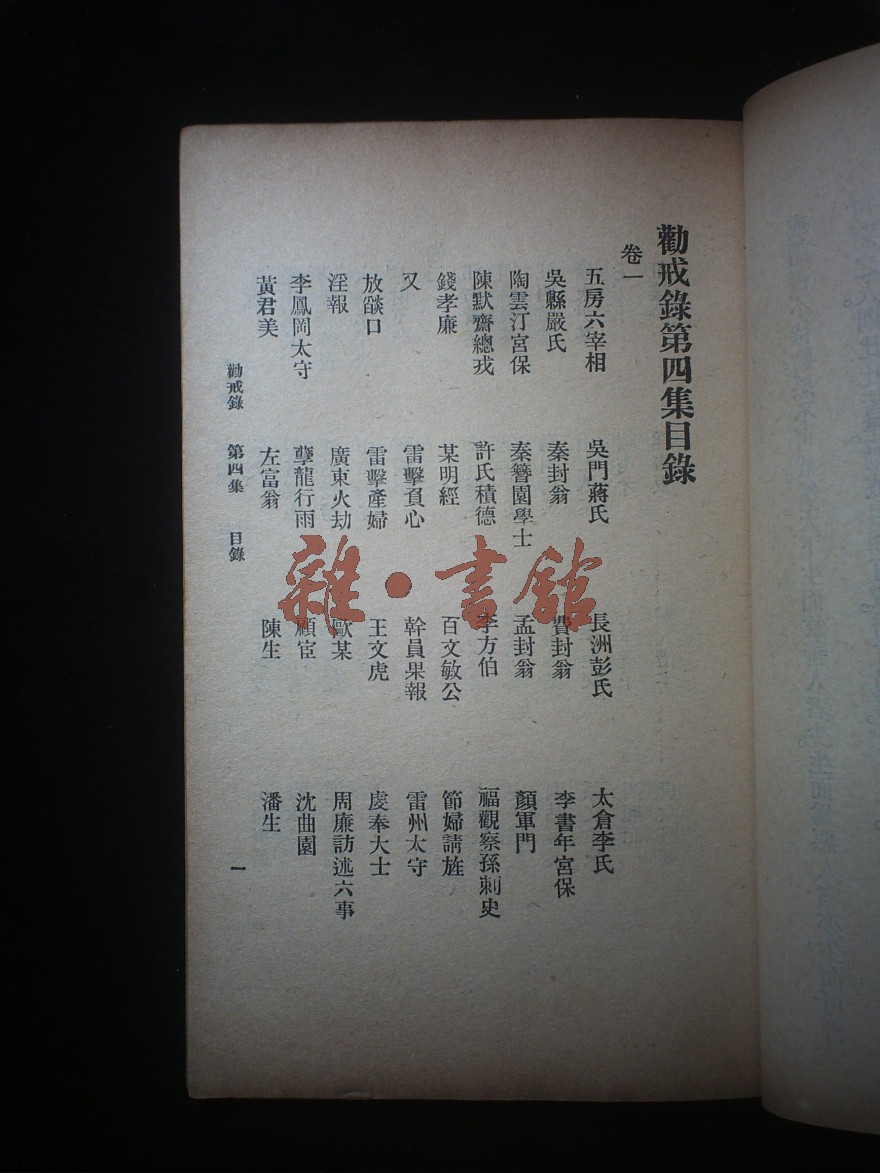 勸戒錄第四集目錄
卷一
五房六宰相　吳門蔣氏　長洲彭氏　太倉李氏
吳縣嚴氏　秦封翁　費封翁　李書年宮保
陶雲汀宮保　秦簪園學士　孟封翁　顏軍門
陳默齋總戎　許氏積德　李方伯　福觀察孫刺史
錢孝廉　某明經　百文敏公　節婦請旌
又　雷擊負心　幹員果報　雷州太守
放燄口　雷擊產婦　王文虎　虔奉大士
淫報　廣東火劫　歐某　周廉訪述六事
李鳳岡太守　孽龍行雨　顧宦　沈曲園
黃君美　左富翁　陳生　潘生
勸戒錄　第四集　目錄　一
雜·書舘